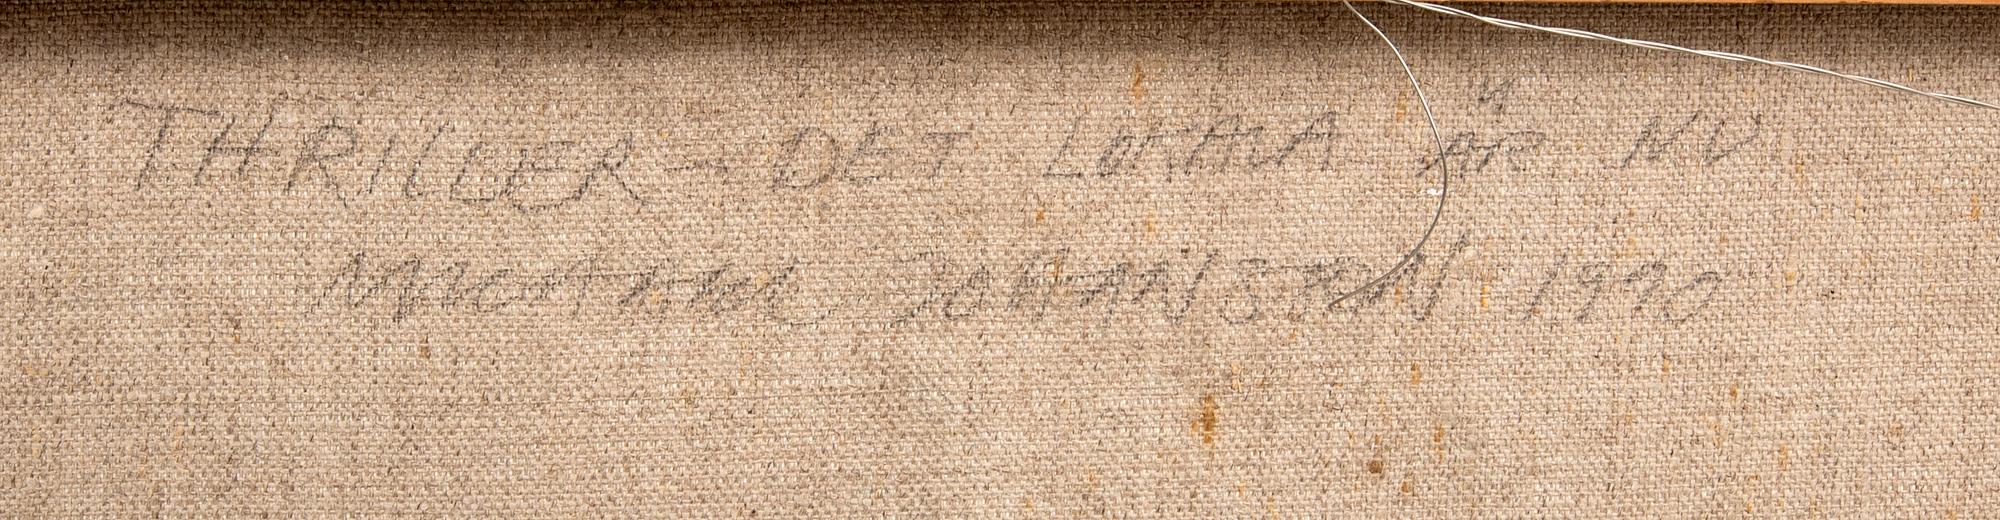 THRILLER - DET LOMMA ÄR NU
MICHAEL JOHANSSON 1990